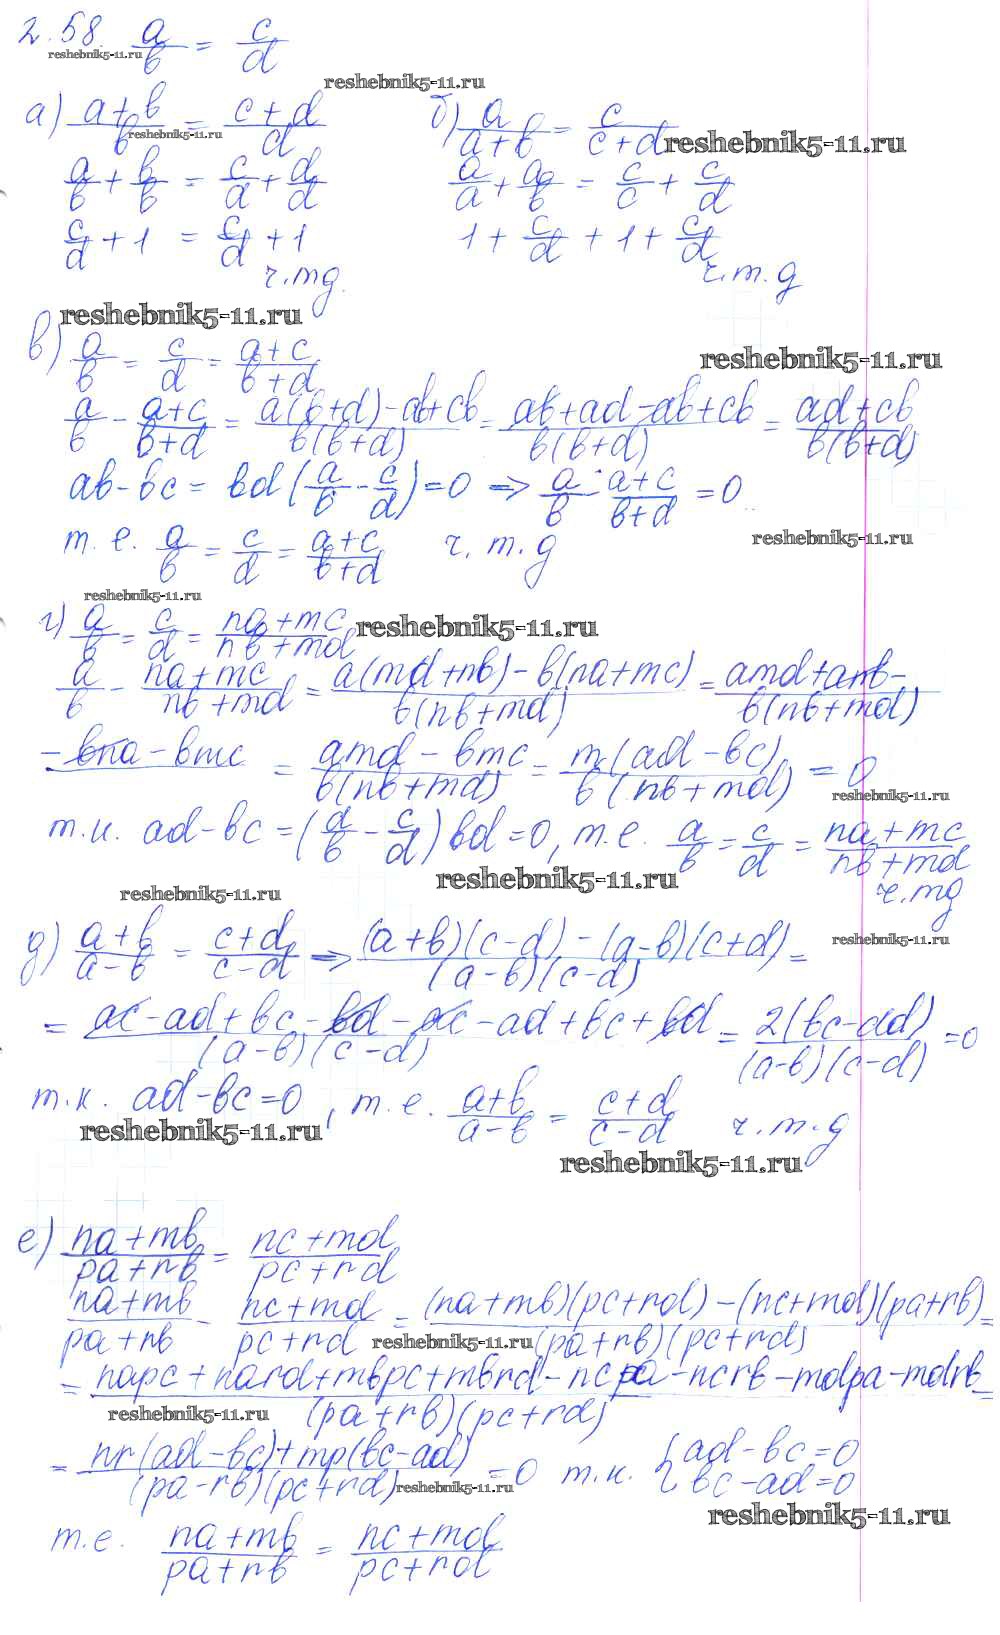 2.58. a/в = c/d
reshebnik5-11.ru
reshebnik5-11.ru
а) (a+в)/в = (c+d)/d
reshebnik5-11.ru
a/в + в/в = c/d + d/d
c/d + 1 = c/d + 1
ч.тд.
б) a/(a+в) = c/(c+d)
reshebnik5-11.ru
a/a + a/в = c/c + c/d
1 + c/d + 1 + c/d
ч.т.д
reshebnik5-11.ru
в) a/в = c/d = (a+c)/(в+d)
reshebnik5-11.ru
a/в - (a+c)/(в+d) = (a(в+d)-aв+cв)/(в(в+d)) = (aв+ad-aв+cв)/(в(в+d)) = (ad+cв)/(в(в+d))
aв-вc = вd(a/в - c/d)=0 => a/в - (a+c)/(в+d) = 0
reshebnik5-11.ru
т.е. a/в = c/d = (a+c)/(в+d) ч.т.д
reshebnik5-11.ru
г) a/в = c/d = (na+mc)/(nв+md)
reshebnik5-11.ru
a/в - (na+mc)/(nв+md) = (a(md+nв)-в(na+mc))/(в(nв+md)) = (amd+anв-)/(в(nв+md))
-вna-вmc = (amd-вmc)/(в(nв+md)) = m(ad-вc)/(в(nв+md)) = 0
reshebnik5-11.ru
т.к. ad-вc = (a/в - c/d)вd=0, т.е. a/в = c/d = (na+mc)/(nв+md)
ч.тд
reshebnik5-11.ru
reshebnik5-11.ru
reshebnik5-11.ru
д) (a+в)/(a-в) = (c+d)/(c-d) => ((a+в)(c-d)-(a-в)(c+d))/((a-в)(c-d)) =
= (ac-ad+вc-вd-ac-ad+вc+вd)/((a-в)(c-d)) = 2(вc-ad)/((a-в)(c-d)) =0
т.к. ad-вc=0, т.е. (a+в)/(a-в) = (c+d)/(c-d) ч.т.д
reshebnik5-11.ru
reshebnik5-11.ru
е) (na+mв)/(pa+rв) = (nc+md)/(pc+rd)
(na+mв)/(pa+rв) - (nc+md)/(pc+rd) = ((na+mв)(pc+rd)-(nc+md)(pa+rв))/((pa+rв)(pc+rd)) =
reshebnik5-11.ru
= (napc+nard+mвpc+mвrd-ncpa-ncrв-mdpa-mdrв)/((pa+rв)(pc+rd)) =
reshebnik5-11.ru
= (nr(ad-вc)+mp(вc-ad))/((pa-rв)(pc+rd)) =0 т.к. { ad-вc=0
вc-ad=0
reshebnik5-11.ru
reshebnik5-11.ru
т.е. (na+mв)/(pa+rв) = (nc+md)/(pc+rd)